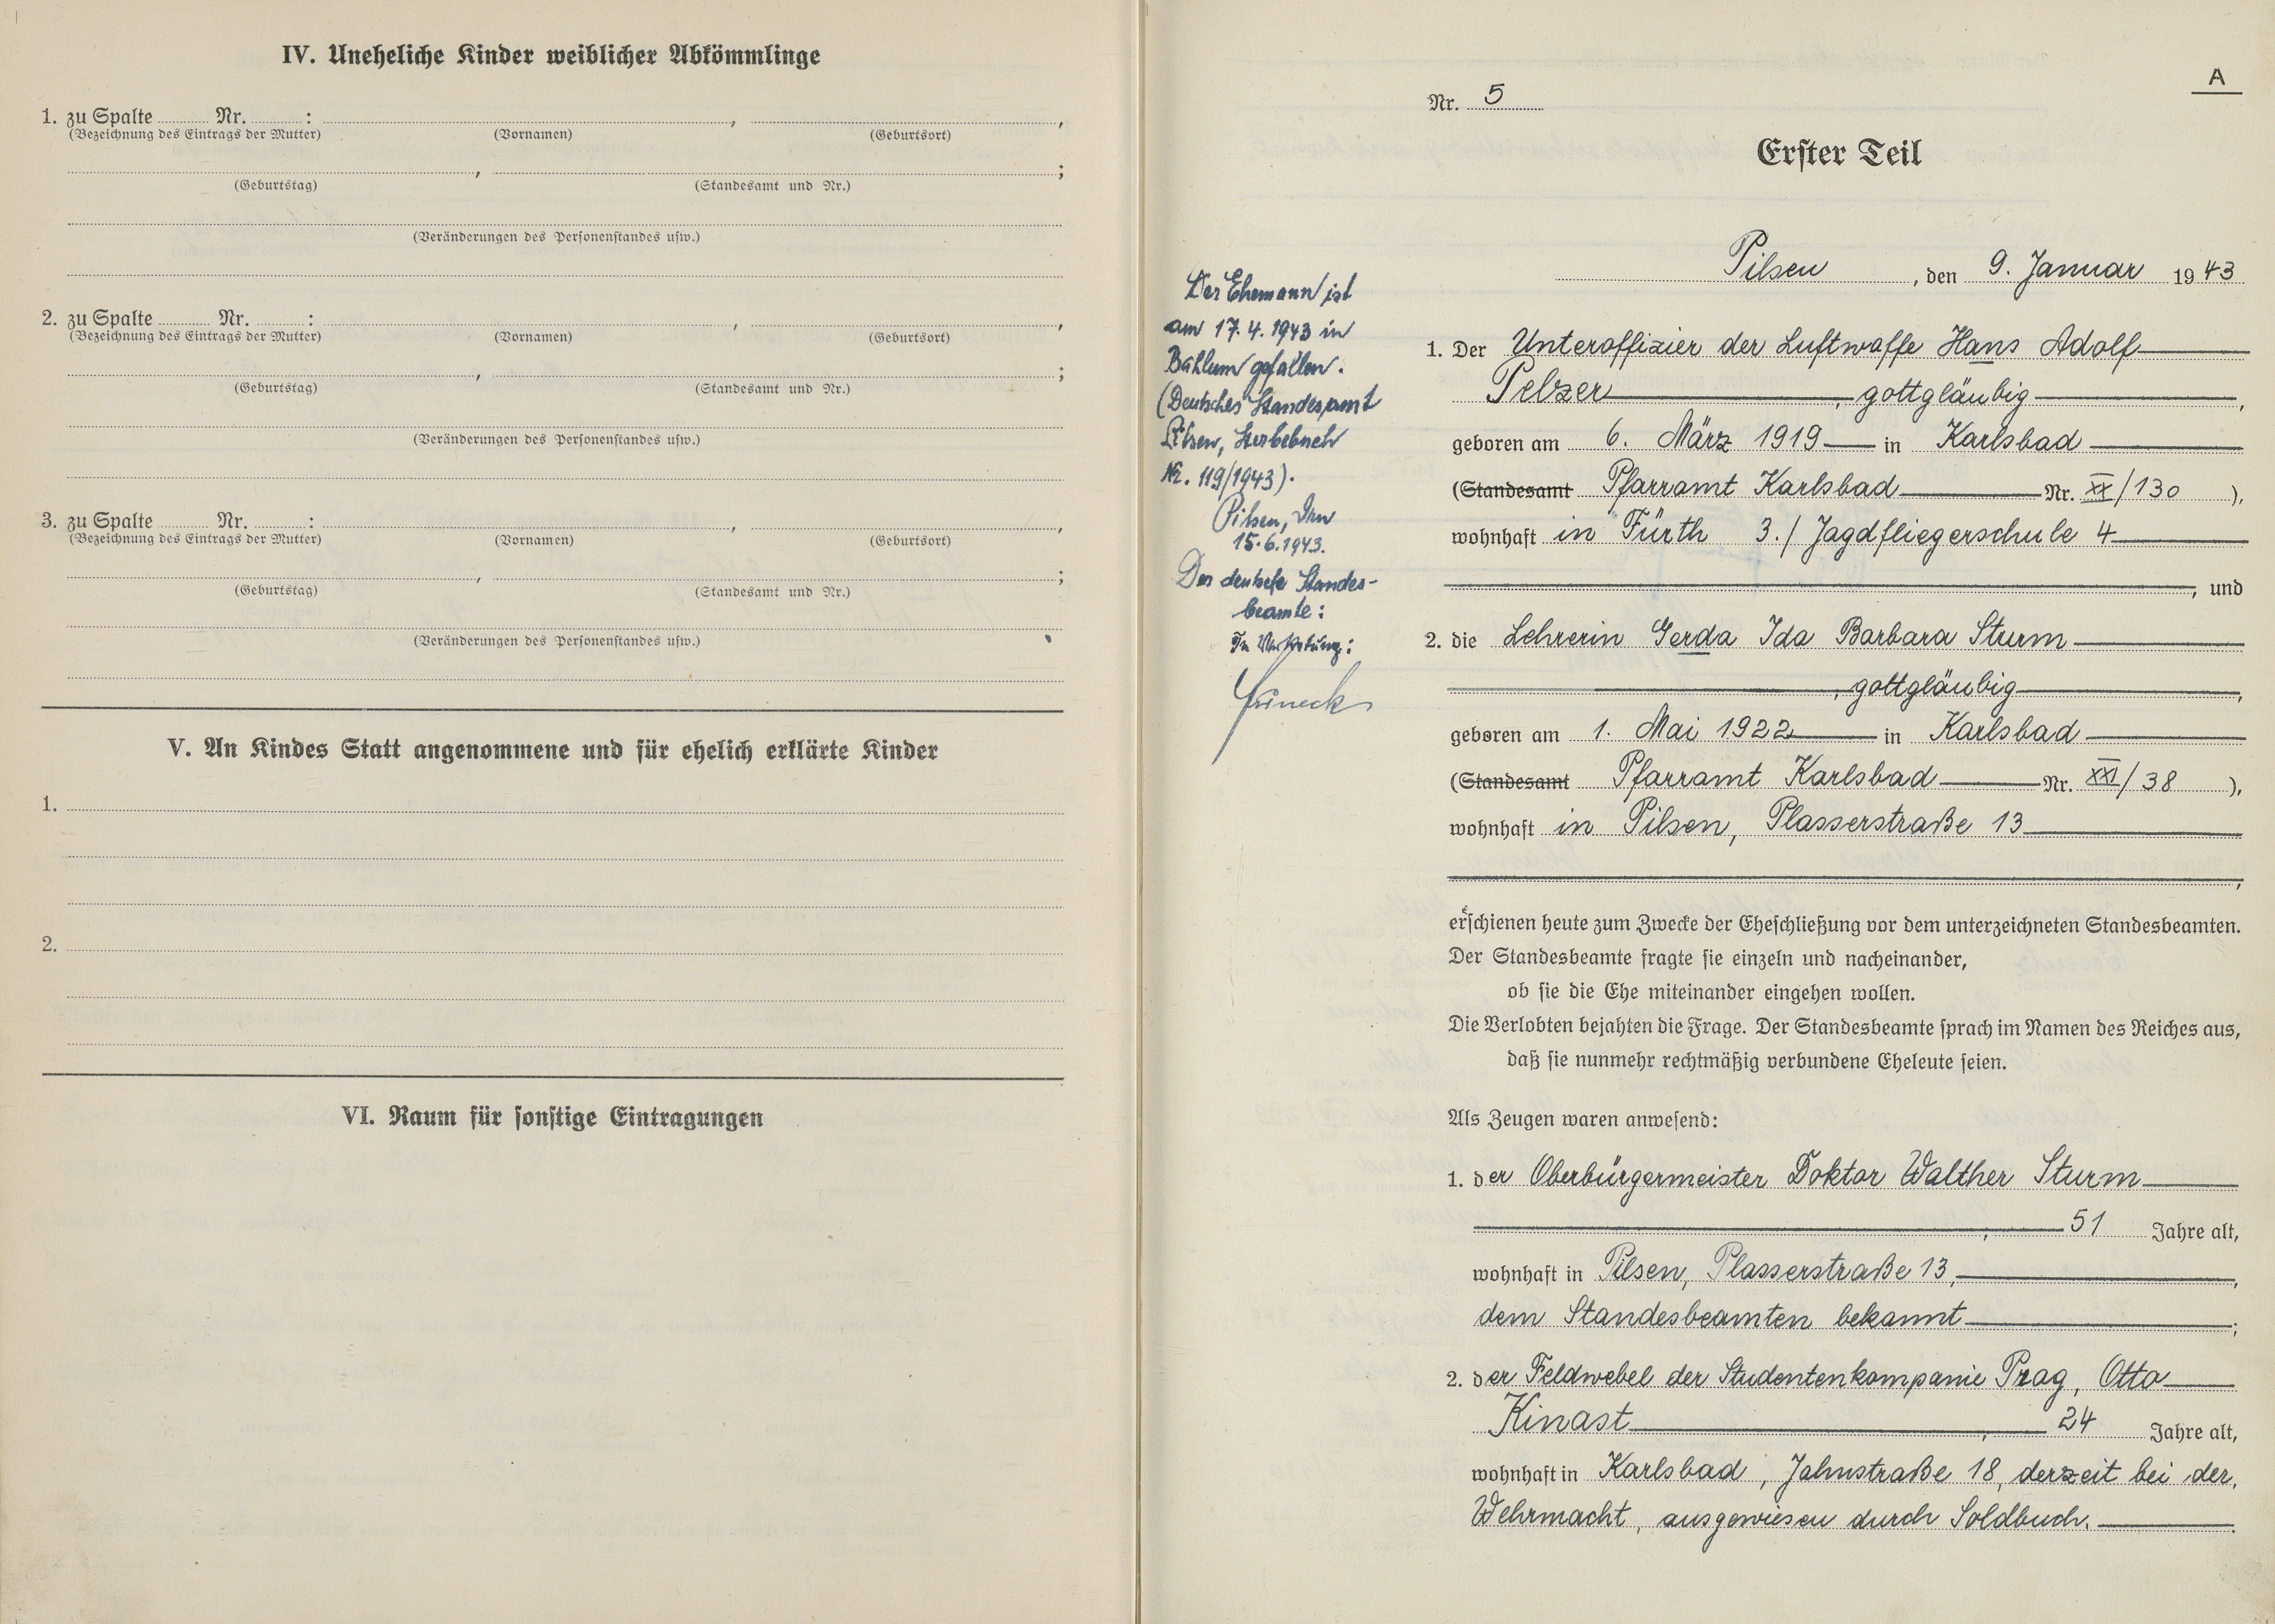 IV. Uneheliche Kinder weiblicher Abkömmlinge
1. zu Spalte ........ Nr. ........ : ........ , ........ ,
(Bezeichnung des Eintrags der Mutter) (Vornamen) (Geburtsort)
........ , ........ ;
(Geburtstag) (Standesamt und Nr.)
(Veränderungen des Personenstandes usw.)
2. zu Spalte ........ Nr. ........ : ........ , ........ ,
(Bezeichnung des Eintrags der Mutter) (Vornamen) (Geburtsort)
........ , ........ ;
(Geburtstag) (Standesamt und Nr.)
(Veränderungen des Personenstandes usw.)
3. zu Spalte ........ Nr. ........ : ........ , ........ ,
(Bezeichnung des Eintrags der Mutter) (Vornamen) (Geburtsort)
........ , ........ ;
(Geburtstag) (Standesamt und Nr.)
(Veränderungen des Personenstandes usw.)
V. An Kindes Statt angenommene und für ehelich erklärte Kinder
1.
2.
VI. Raum für sonstige Eintragungen
A
Nr. 5
Erster Teil
Pilsen, den 9. Januar 1943
Der Ehemann ist
am 17.4.1943 in
gefallen.
(Deutsches Standesamt
Pilsen, Sterbebuch
Nr. 119/1943).
Pilsen, den
15.6.1943.
Der deutsche Standes-
beamte:
In Vertretung:
1. Der Unteroffizier der Luftwaffe Hans Adolf
Pelzer, gottgläubig,
geboren am 6. März 1919 in Karlsbad
(Standesamt Pfarramt Karlsbad Nr. XX/130 ),
wohnhaft in Fürth 3./ Jagdfliegerschule 4
, und
2. die Lehrerin Gerda Ida Barbara Sturm
, gottgläubig,
geboren am 1. Mai 1922 in Karlsbad
(Standesamt Pfarramt Karlsbad Nr. XXI/38 ),
wohnhaft in Pilsen, Plasserstraße 13
,
erschienen heute zum Zwecke der Eheschließung vor dem unterzeichneten Standesbeamten.
Der Standesbeamte fragte sie einzeln und nacheinander,
ob sie die Ehe miteinander eingehen wollen.
Die Verlobten bejahten die Frage. Der Standesbeamte sprach im Namen des Reiches aus,
daß sie nunmehr rechtmäßig verbundene Eheleute seien.
Als Zeugen waren anwesend:
1. der Oberbürgermeister Doktor Walther Sturm
, 51 Jahre alt,
wohnhaft in Pilsen, Plasserstraße 13,
dem Standesbeamten bekannt;
2. der Feldwebel der Studentenkompanie Prag, Otto
Kinast, 24 Jahre alt,
wohnhaft in Karlsbad, Jahnstraße 18, derzeit bei der
Wehrmacht, ausgewiesen durch Soldbuch.